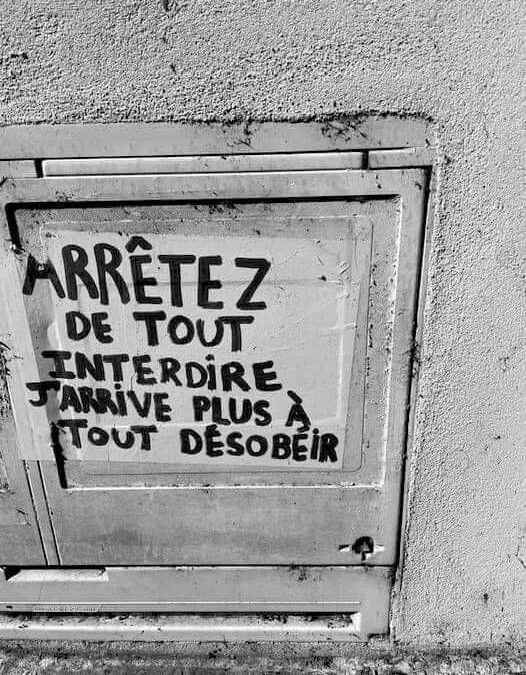 ARRÊTEZ
DE TOUT
INTERDIRE
J'ARRIVE PLUS À
TOUT DÉSOBÉIR